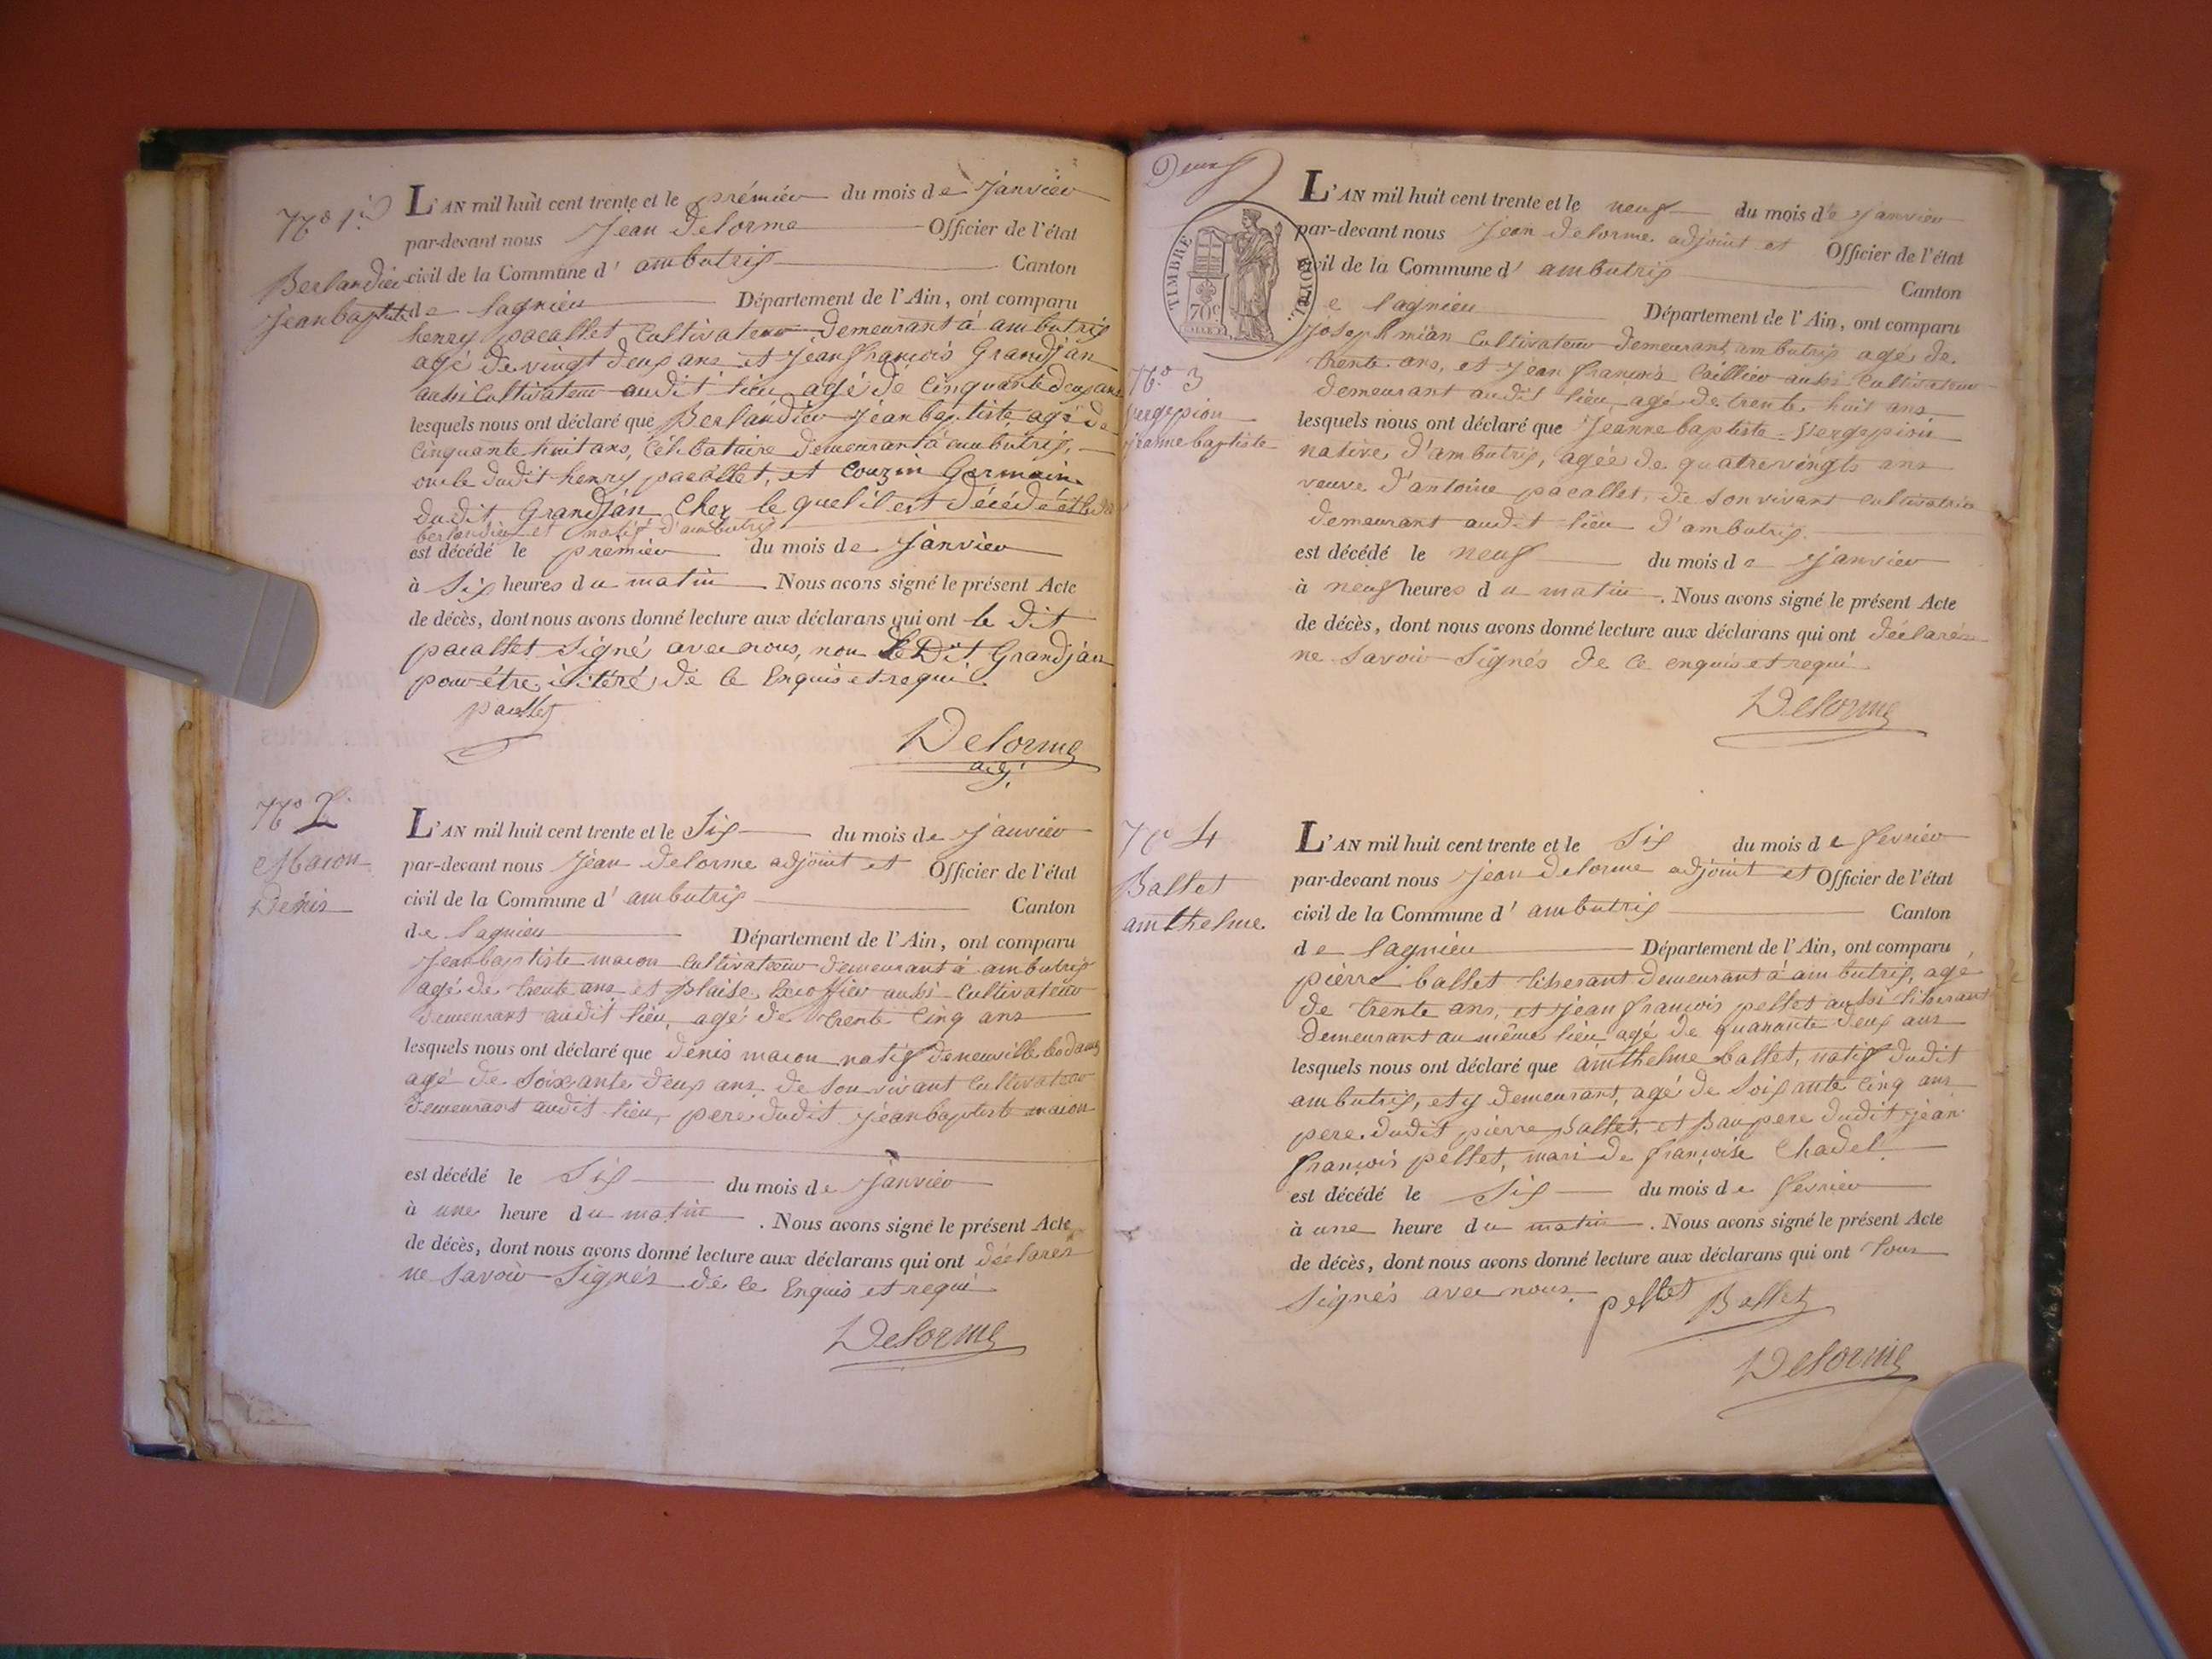 No 1er
Berlandier
Jeanbaptiste
L'AN mil huit cent trente et le prémier du mois de Janvier
par-devant nous Jean Delorme Officier de l'état
civil de la Commune d' ambutrix Canton
de lagnieu Département de l'Ain, ont comparu
henry pacallet Cultivateur demeurant à ambutrix
agé de vingt deux ans et Jean françois Grandjan
aussi Cultivateur audit lieu agé de Cinquante deux ans
lesquels nous ont déclaré que Berlandier Jean baptiste, agé de
Cinquante huit ans, Célibataire demeurant à ambutrix,
oncle dudit henry pacallet, et Couzin Germain
dudit Grandjan Chez le quel il est décédé
berlandier et natif d'ambutrix
est décédé le premier du mois de Janvier
à Six heures du matin Nous avons signé le présent Acte
de décès, dont nous avons donné lecture aux déclarans qui ont le dit
pacallet Signé avec nous, non Le Dit Grandjan
pour être ilitéré de Ce Enquis et requi
pacallet
Delorme
adj.
No 2
Macon
Denis
L'AN mil huit cent trente et le Six du mois de Janvier
par-devant nous Jean Delorme adjoint et Officier de l'état
civil de la Commune d' ambutrix Canton
de lagnieu Département de l'Ain, ont comparu
Jeanbaptiste macon Cultivateur demeurant à ambutrix
agé de trente ans et Blaise aussi Cultivateur
demeurant audit lieu, agé de trente Cinq ans
lesquels nous ont déclaré que denis macon natif de neuville les dames
agé de Soixante deux ans de Son vivant Cultivateur
demeurant audit lieu, pere dudit Jeanbaptiste macon
est décédé le Six du mois de Janvier
à une heure du matin . Nous avons signé le présent Acte
de décès, dont nous avons donné lecture aux déclarans qui ont déclarer
ne Savoir Signés de Ce Enquis et requi
Delorme
Deux
TIMBRE ROYAL
70c
No 3
Vergepion
jeanne baptiste
L'AN mil huit cent trente et le neuf du mois de Janvier
par-devant nous Jean delorme adjoint et Officier de l'état
civil de la Commune d' ambutrix Canton
e lagnieu Département de l'Ain, ont comparu
Joseph mian Cultivateur demeurant ambutrix agé de
trente ans, et Jean françois Caillier aussi Cultivateur
demeurant audit lieu, agé de trente huit ans
lesquels nous ont déclaré que Jeanne baptiste Vergepion
native d'ambutrix, agée de quatrevingts ans
veuve d'antoine pacallet, de Son vivant Cultivatrice
demeurant audit lieu d'ambutrix.
est décédé le neuf du mois de Janvier
à neuf heures du matin . Nous avons signé le présent Acte
de décès, dont nous avons donné lecture aux déclarans qui ont déclarés
ne Savoir Signés de Ce enquis et requi
Delorme
No 4
Ballet
amthelme
L'AN mil huit cent trente et le Six du mois de fevrier
par-devant nous Jean Delorme adjoint et Officier de l'état
civil de la Commune d' ambutrix Canton
de lagnieu Département de l'Ain, ont comparu
pierre ballet tisserant demeurant à ambutrix, agé
de trente ans, et Jean françois pellet aussi tisserant
demeurant au même lieu agé de quarante deux ans
lesquels nous ont déclaré que amthelme ballet, natif dudit
ambutrix, et y demeurant, agé de Soixante Cinq ans
pere dudit pierre Ballet, et Baupere dudit jean
françois pellet, mari de françoise Chadel
est décédé le Six du mois de fevrier
à une heure du matin . Nous avons signé le présent Acte
de décès, dont nous avons donné lecture aux déclarans qui ont tous
Signés avec nous. pellet Ballet
Delorme